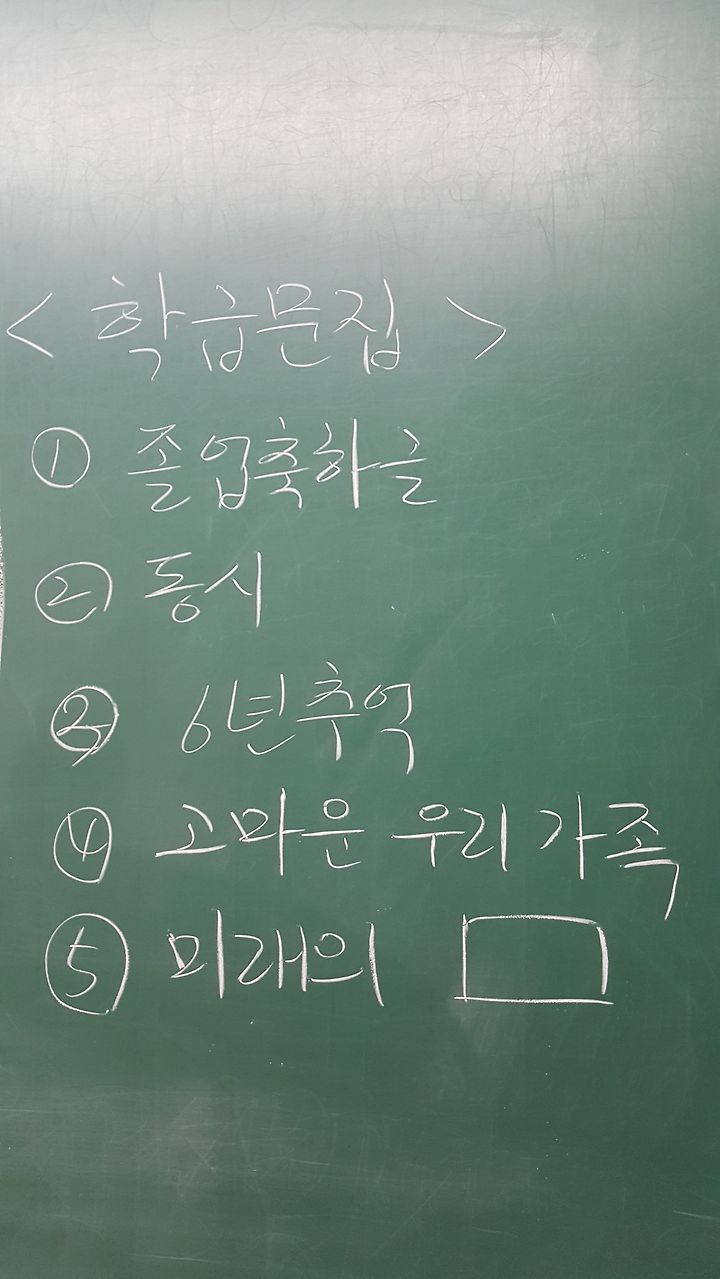 < 학급문집 >
① 졸업축하글
② 동시
③ 6년추억
④ 고마운 우리 가족
⑤ 미래의